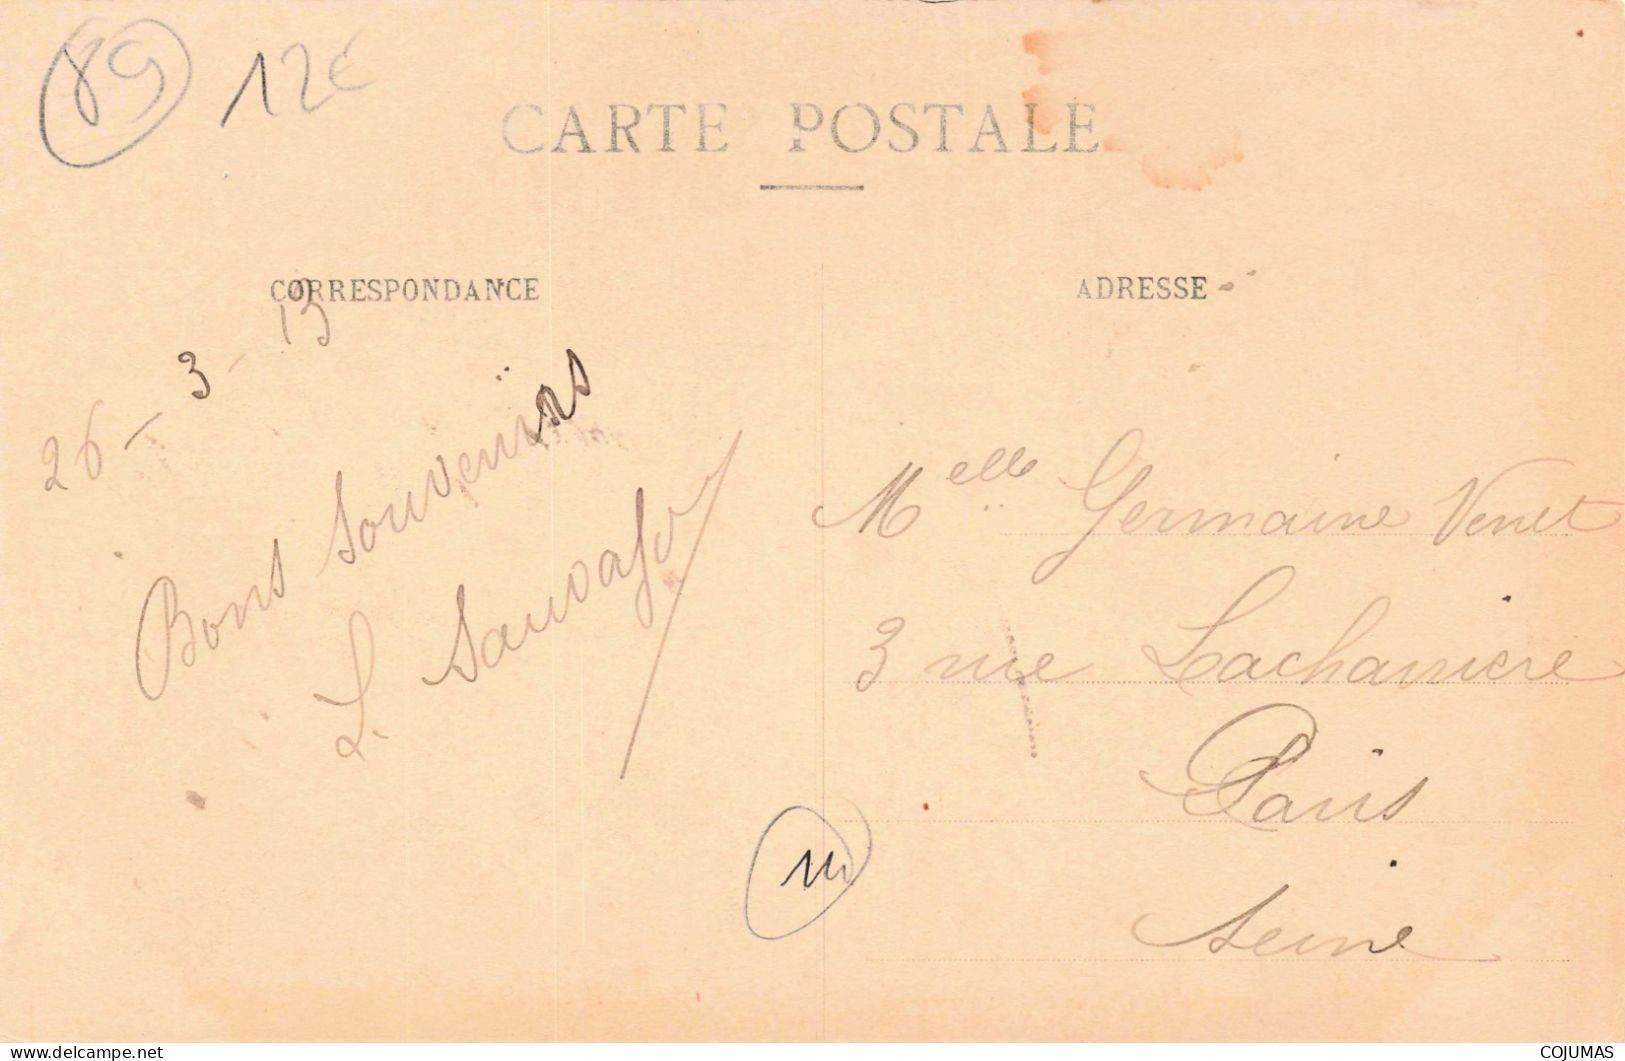 89 12€
CARTE POSTALE
CORRESPONDANCE
ADRESSE
26-3-13
Bons souvenirs
L.
Melle Germaine Venet
3 rue Lacharriere
Paris
Seine
www.delcampe.net
COJUMAS